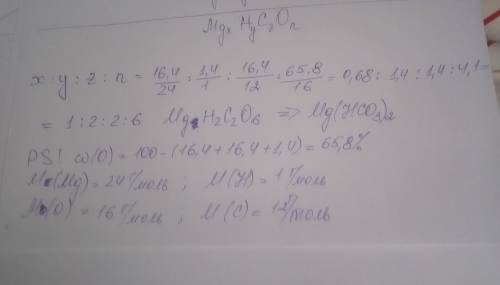 MgxHyCzOn
x : y : z : n = 16,4/24 : 1,4/1 : 16,4/12 : 65,8/16 = 0,68 : 1,4 : 1,4 : 4,1 =
= 1 : 2 : 2 : 6 MgH2C2O6 => Mg(HCO3)2
PS! ω(O) = 100 - (16,4 + 16,4 + 1,4) = 65,8%
M(Mg) = 24 г/моль ; M(H) = 1 г/моль
M(O) = 16 г/моль ; M(C) = 12 г/моль